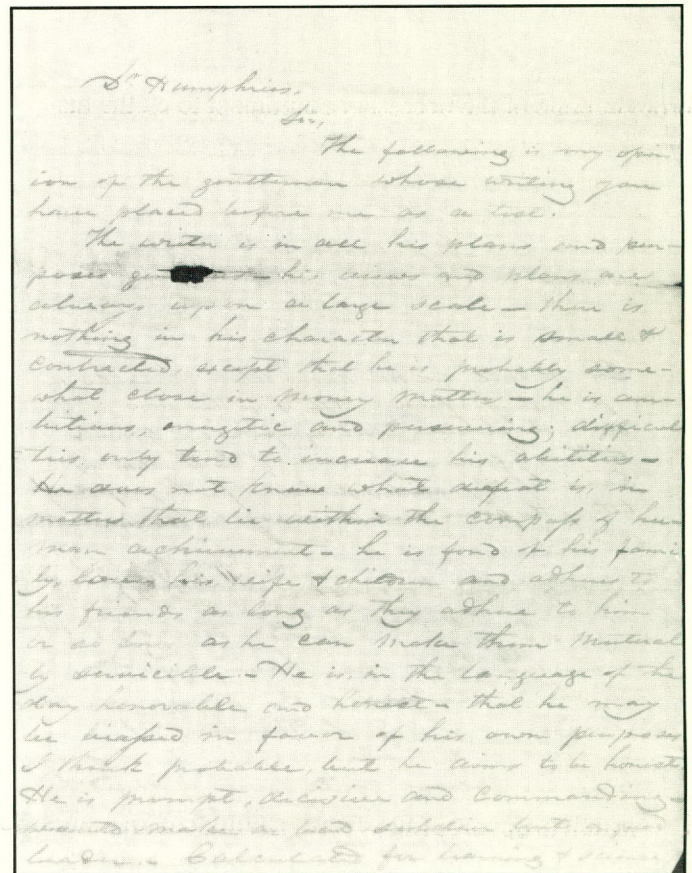 Dr Humphries.
Sir,
The following is my opin
ion of the gentleman whose writing you
have placed before me as a test.
The writer is in all his plans and pur-
poses his views and plans are
always upon a large scale – there is
nothing in his character that is small &
contracted, except that he is probably some-
what close in money matters – he is am
bitious, energetic and persevering; difficul
ties only tend to increase his abilities –
He does not know what defeat is, in
matters that lie within the compass of hu-
man achievement – he is fond of his fami
ly, loves his wife & children and adheres to
his friends as long as they adhere to him
or so long as he can make them mutual
ly serviceable – He is, in the language of the
day honorable and honest – that he may
be biassed in favor of his own purposes
I think probable, but he aims to be honest
He is prompt, decisive and commanding –
would make a bad but a good
leader – Calculated for learning & science